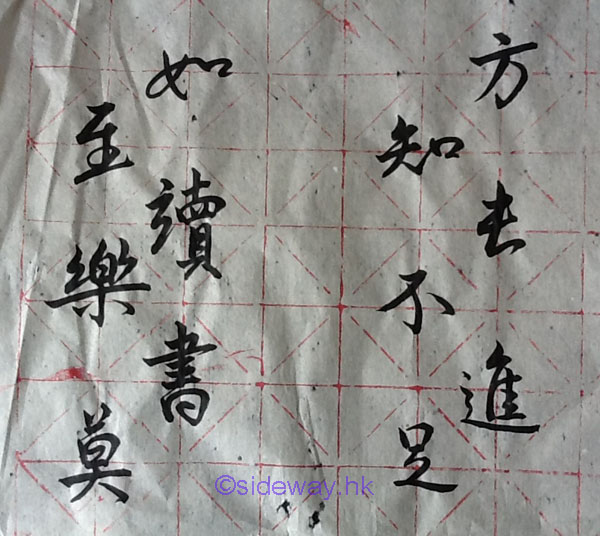 至樂莫
如讀書
知不足
方長進
©sideway.hk